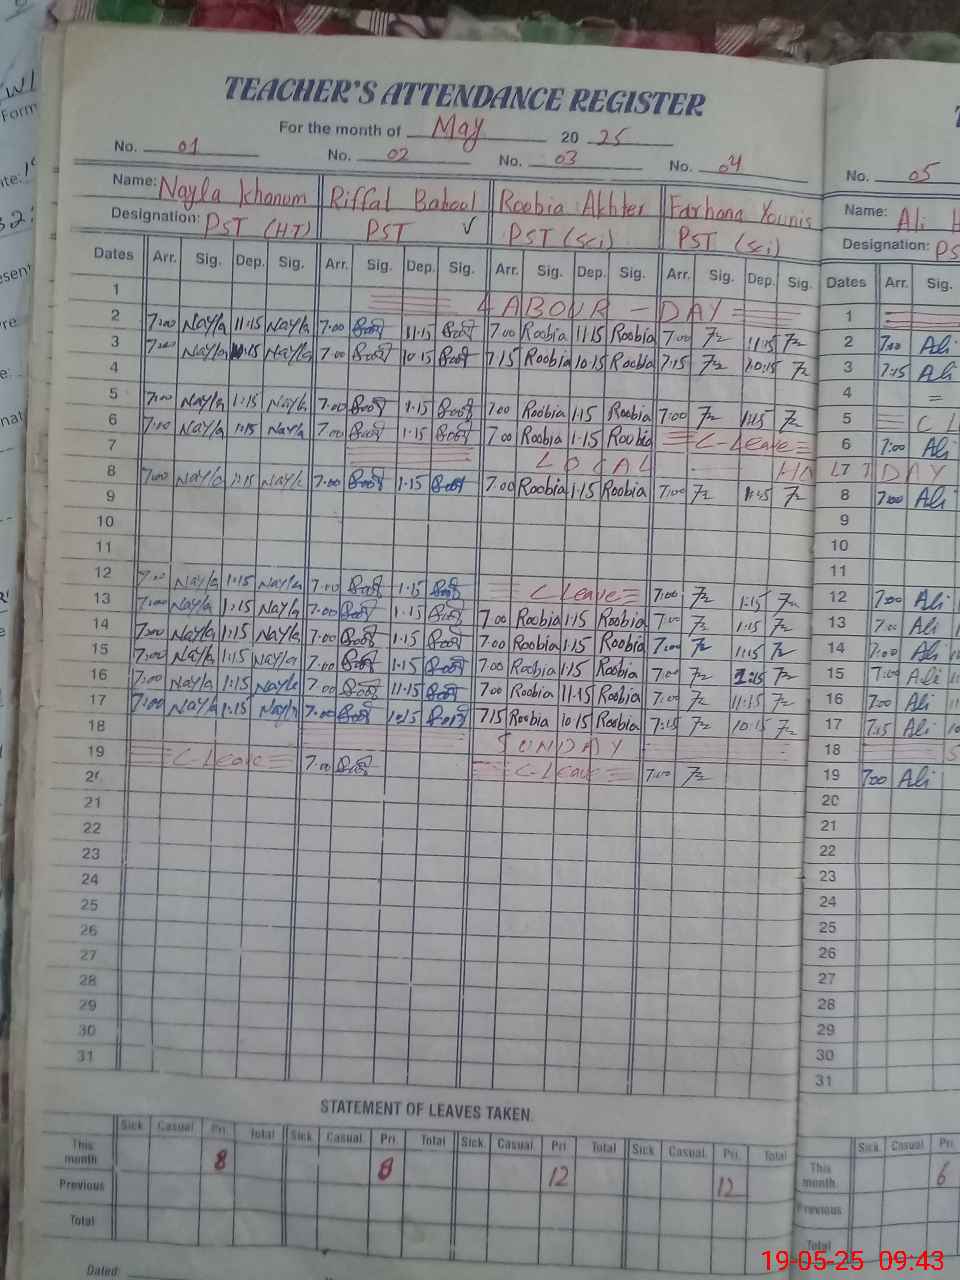 TEACHER'S ATTENDANCE REGISTER
For the month of May 20 25
No. 01 No. 02 No. 03 No. 04 No. 05
Name: Nayla Khanum Riffal Babool Roobia Akhter Farhana Younis Name: Ali
Designation: PST (HT) PST ✓ PST (Sci) PST (Sci) Designation: PS
Dates Arr. Sig. Dep. Sig. Arr. Sig. Dep. Sig. Arr. Sig. Dep. Sig. Arr. Sig. Dep. Sig. Dates Arr. Sig.
1 LABOUR - DAY 1
2 7:00 Nayla 11:15 Nayla 7:00 11:15 7:00 Roobia 11:15 Roobia 7:00 11:15 2 7:00 Ali
3 7:00 Nayla 10:15 Nayla 7:00 10:15 7:15 Roobia 10:15 Roobia 7:15 10:15 3 7:15 Ali
4 4 =
5 7:00 Nayla 1:15 Nayla 7:00 1:15 7:00 Roobia 1:15 Roobia 7:00 1:15 5 C L
6 7:00 Nayla 1:15 Nayla 7:00 1:15 7:00 Roobia 1:15 Roobia C-Leave 6 7:00 Ali
7 LOCAL HOLI 7 DAY
8 7:00 Nayla 1:15 Nayla 7:00 1:15 7:00 Roobia 1:15 Roobia 7:00 1:15 8 7:00 Ali
9 9
10 10
11 11
12 7:00 Nayla 1:15 Nayla 7:00 1:15 C Leave 7:00 1:15 12 7:00 Ali
13 7:00 Nayla 1:15 Nayla 7:00 1:15 7:00 Roobia 1:15 Roobia 7:00 1:15 13 7:00 Ali
14 7:00 Nayla 1:15 Nayla 7:00 1:15 7:00 Roobia 1:15 Roobia 7:00 1:15 14 7:00 Ali
15 7:00 Nayla 1:15 Nayla 7:00 1:15 7:00 Roobia 1:15 Roobia 7:00 1:15 15 7:00 Ali
16 7:00 Nayla 1:15 Nayla 7:00 11:15 7:00 Roobia 11:15 Roobia 7:00 11:15 16 7:00 Ali
17 7:00 Nayla 1:15 Nayla 7:00 10:15 7:15 Roobia 10:15 Roobia 7:15 10:15 17 7:15 Ali
18 SUNDAY 18 S
19 C-Leave 7:00 C-Leave 7:00 19 7:00 Ali
20 20
21 21
22 22
23 23
24 24
25 25
26 26
27 27
28 28
29 29
30 30
31 31
STATEMENT OF LEAVES TAKEN.
Sick Casual Pri. Total Sick. Casual. Pri. Total Sick. Casual. Pri. Total Sick Casual. Pri. Total Sick. Casual Pri.
This month 8 8 12 12 This month 6
Previous Previous
Total Total
Dated:
19-05-25 09:43